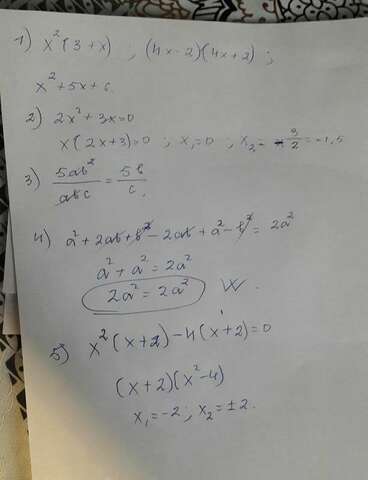 1) x²(3+x) ; (4x-2)(4x+2) ;
x²+5x+6
2) 2x²+3x=0
x(2x+3)=0 ; x₁=0 ; x₂=-3/2=-1,5
3) 5ab²/abc = 5b/c.
4) a²+2ab+b²-2ab+a²-b²=2a²
a²+a²=2a²
2a²=2a² W.
5) x²(x+2)-4(x+2)=0
(x+2)(x²-4)
x₁=-2; x₂=±2.